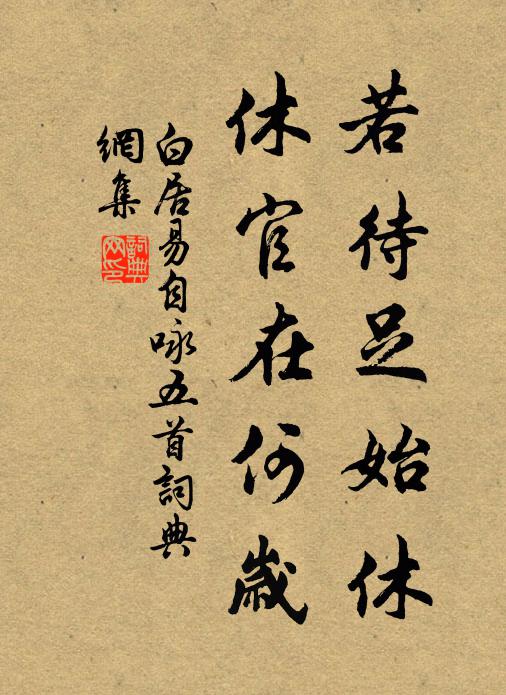 若待足始休
休官在何歲
白居易自咏五首詞典
網集
詞典
网印